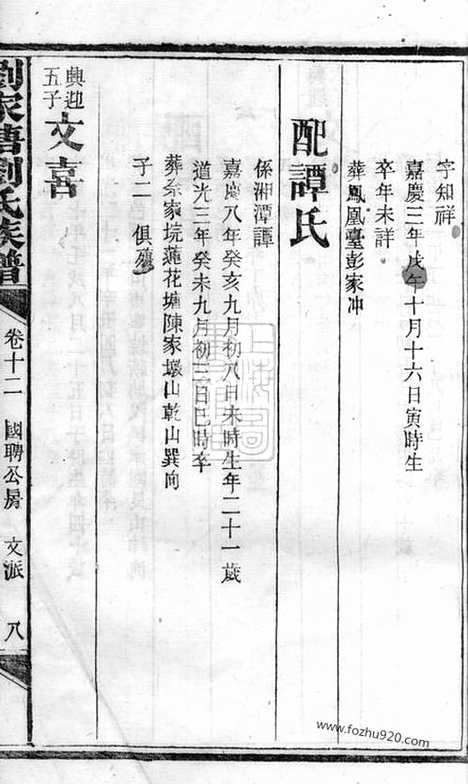 字知祥
嘉慶三年戊午十月十六日寅時生
卒年未詳
葬鳳凰臺彭家冲
配譚氏
係湘潭譚
嘉慶八年癸亥九月初八日未時生年二十一歲
道光三年癸未九月初三日巳時卒
葬余家垸蓮花塘陳家壩山乾山巽向
子二 俱殤
興迎五子 文喜
劉家塘劉氏族譜 卷十二 國聘公房 文派 八
www.fozhu920.com